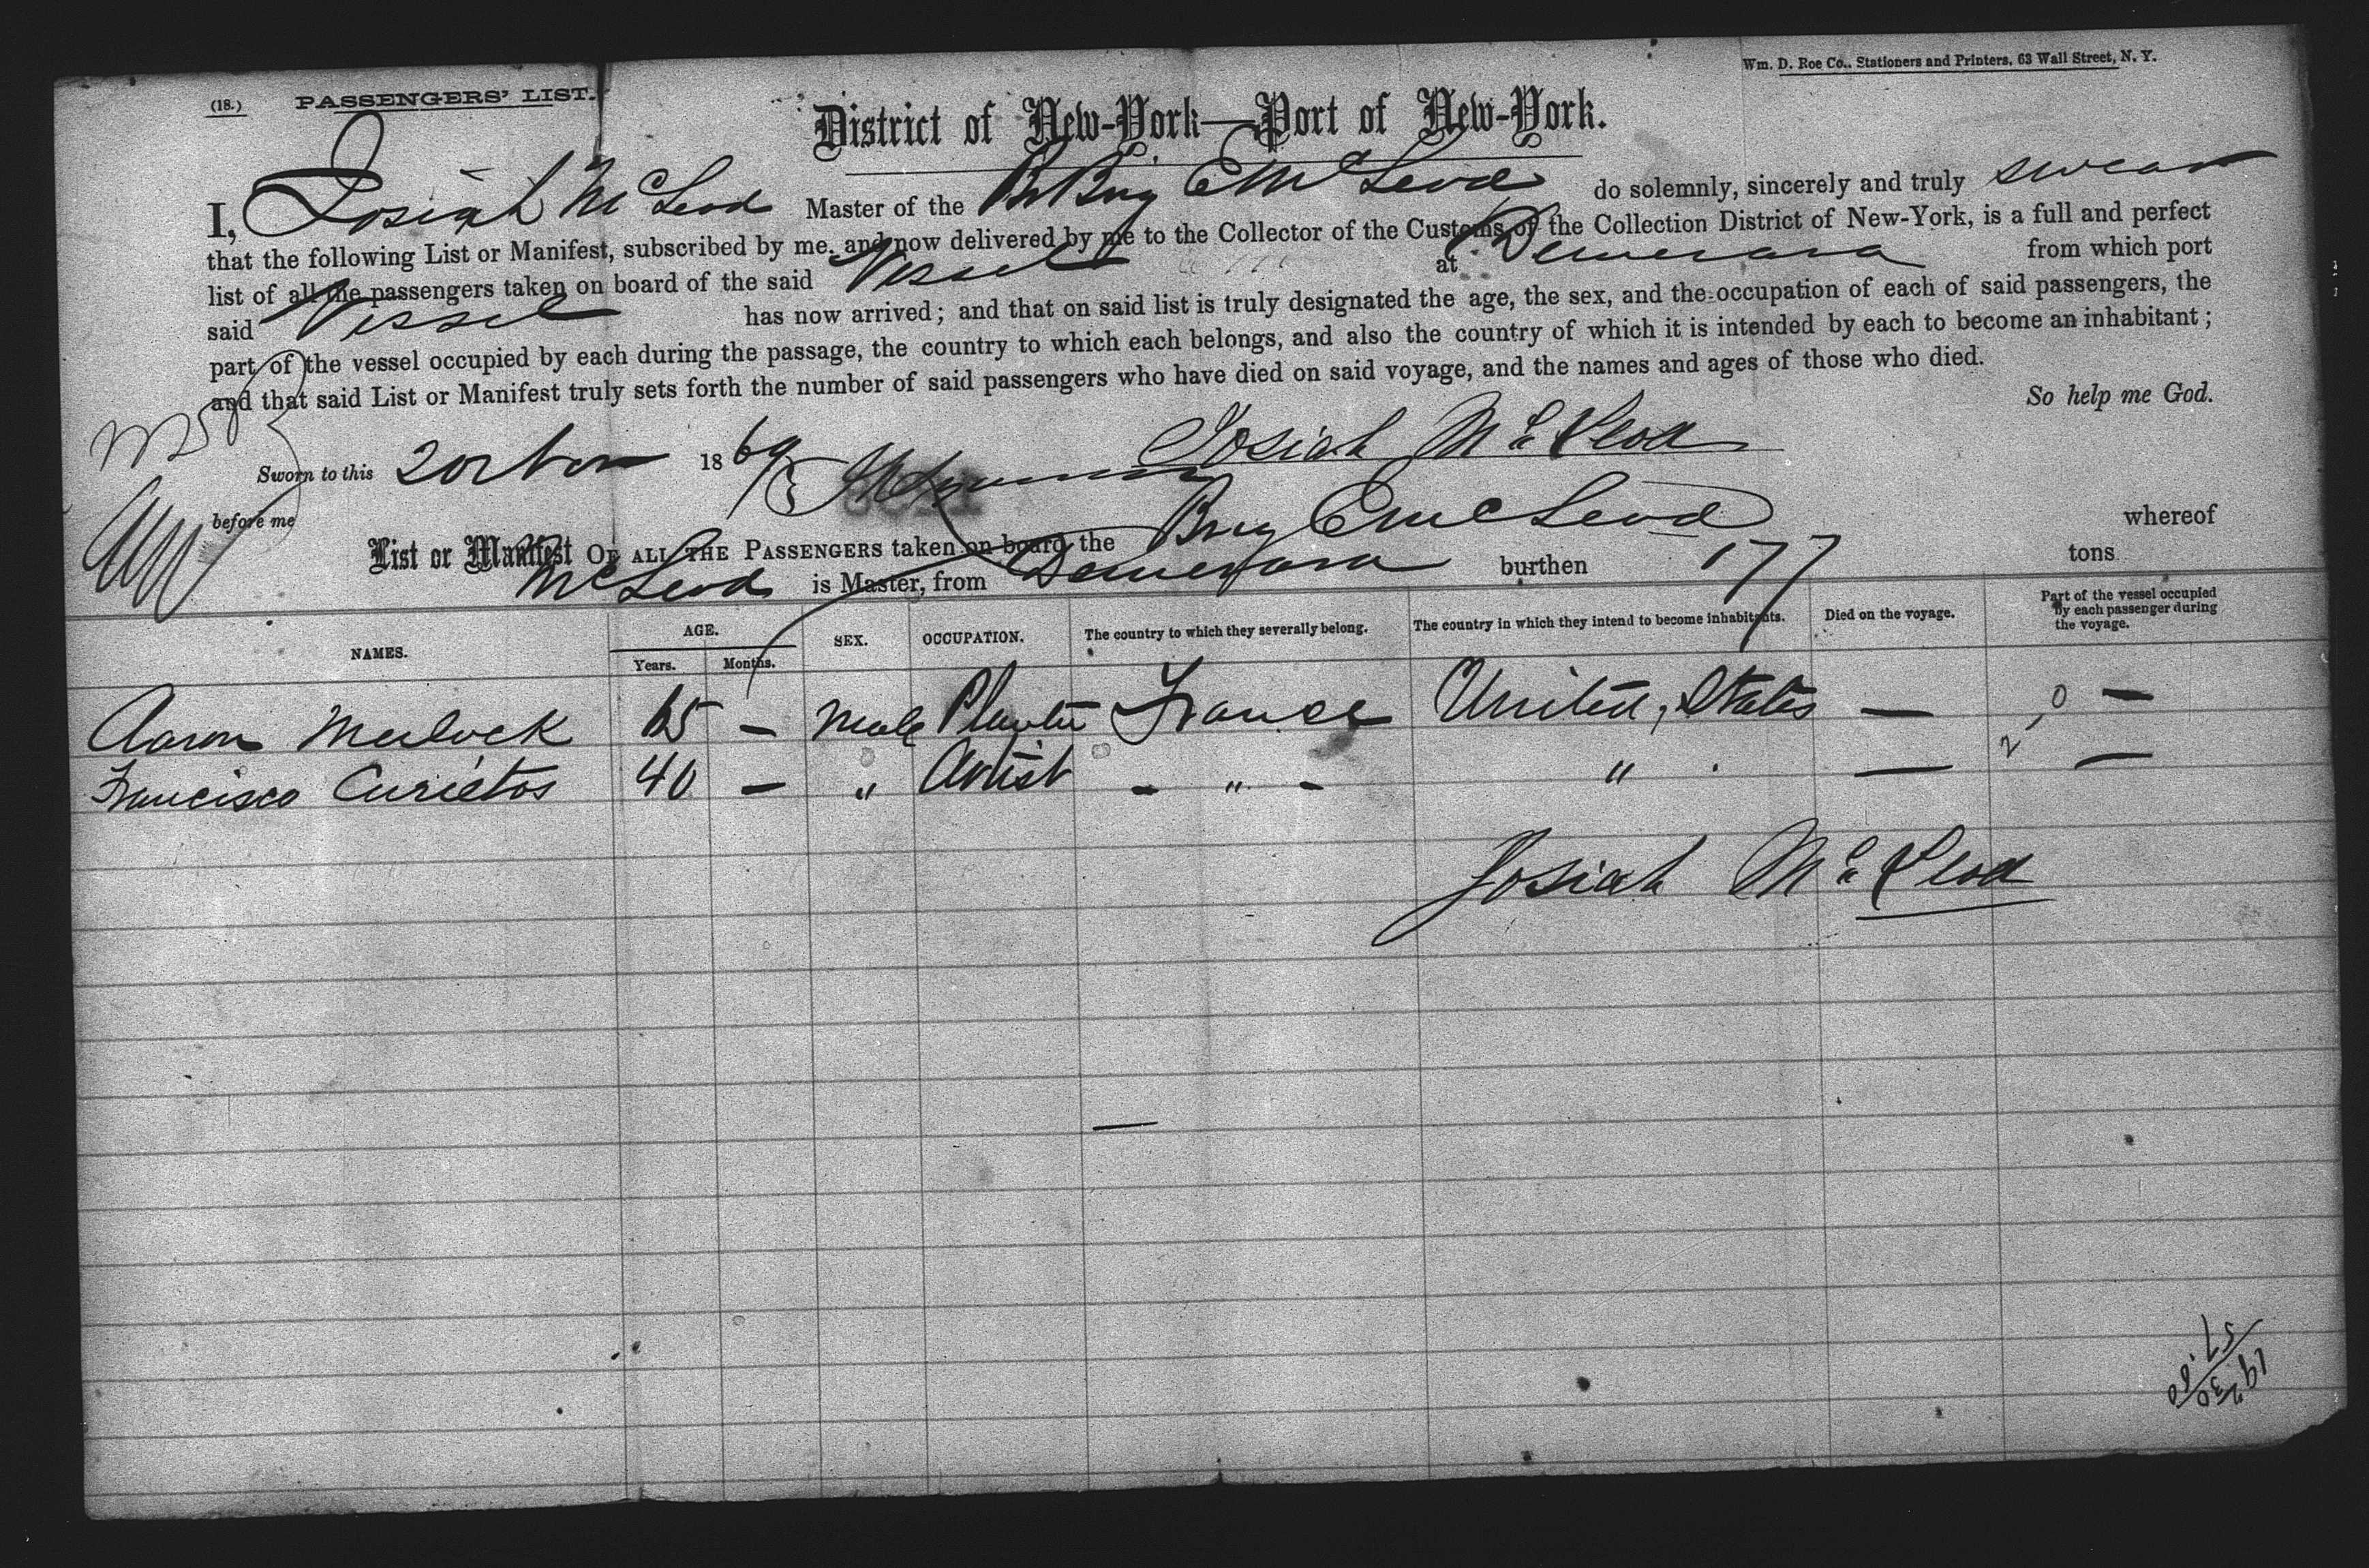 Wm. D. Roe Co., Stationers and Printers, 63 Wall Street, N. Y.
(18.) PASSENGERS' LIST.
District of New-York—Port of New-York.
I, Josiah McLeod Master of the Br Brig E McLeod do solemnly, sincerely and truly swear
that the following List or Manifest, subscribed by me, and now delivered by me to the Collector of the Customs of the Collection District of New-York, is a full and perfect
list of all the passengers taken on board of the said Vessel at Demerara from which port
said Vessel has now arrived; and that on said list is truly designated the age, the sex, and the occupation of each of said passengers, the
part of the vessel occupied by each during the passage, the country to which each belongs, and also the country of which it is intended by each to become an inhabitant;
and that said List or Manifest truly sets forth the number of said passengers who have died on said voyage, and the names and ages of those who died.
So help me God.
Sworn to this 20 1869 Josiah McLeod
before me
List or Manifest OF ALL THE PASSENGERS taken on board the Brig E McLeod whereof
McLeod is Master, from Demerara burthen 177 tons
NAMES. AGE. Years. Months. SEX. OCCUPATION. The country to which they severally belong. The country in which they intend to become inhabitants. Died on the voyage. Part of the vessel occupied by each passenger during the voyage.
Aaron 65 — Male Planter France United States — —
Francisco Curietos 40 — " Artist - " - " — —
Josiah McLeod